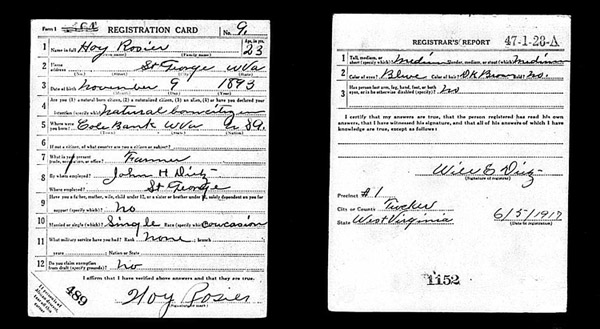 Form 1 REGISTRATION CARD No. 9
1 Name in full Hoy Rosier Age, in yrs. 23
(Given name) (Family name)
2 Home address St George WVa
(No.) (Street) (City) (State)
3 Date of birth November 9 1893
(Month) (Day) (Year)
4 Are you (1) a natural born citizen, (2) a naturalized citizen, (3) an alien, (4) or have you declared your
intention (specify which)? natural born citizen
5 Where were you born? Cole Bank WVa
(Town) (State) (Nation)
6 If not a citizen, of what country are you a citizen or subject?
7 What is your present trade, occupation, or office? Farmer
8 By whom employed? John H Ditz
Where employed? St George
9 Have you a father, mother, wife, child under 12, or a sister or brother under 12, solely dependent on you for
support (specify which)? No
10 Married or single (which)? Single Race (specify which)? Caucasion
11 What military service have you had? Rank None ; branch
years ; Nation or State
12 Do you claim exemption
from draft (specify grounds)? No
I affirm that I have verified above answers and that they are true.
489
Hoy Rosier
(Signature or mark)
REGISTRAR'S REPORT 47-1-28-A
1 Tall, medium, or short (specify which)? medium Slender, medium, or stout (which)? medium
2 Color of eyes? Blue Color of hair? Dk Brown Bald? No.
3 Has person lost arm, leg, hand, foot, or both
eyes, or is he otherwise disabled (specify)? No
I certify that my answers are true, that the person registered has read his own
answers, that I have witnessed his signature, and that all of his answers of which I have
knowledge are true, except as follows:
Will E Ditz
(Signature of registrar)
Precinct #1
City or County Tucker
State West Virginia 6/5/1917
(Date of registration)
1152